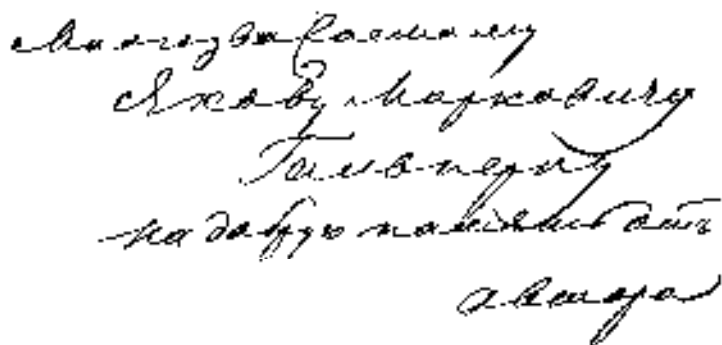 Многоуважаемому
Якову Марковичу
Гальперну
на добрую память отъ
автора